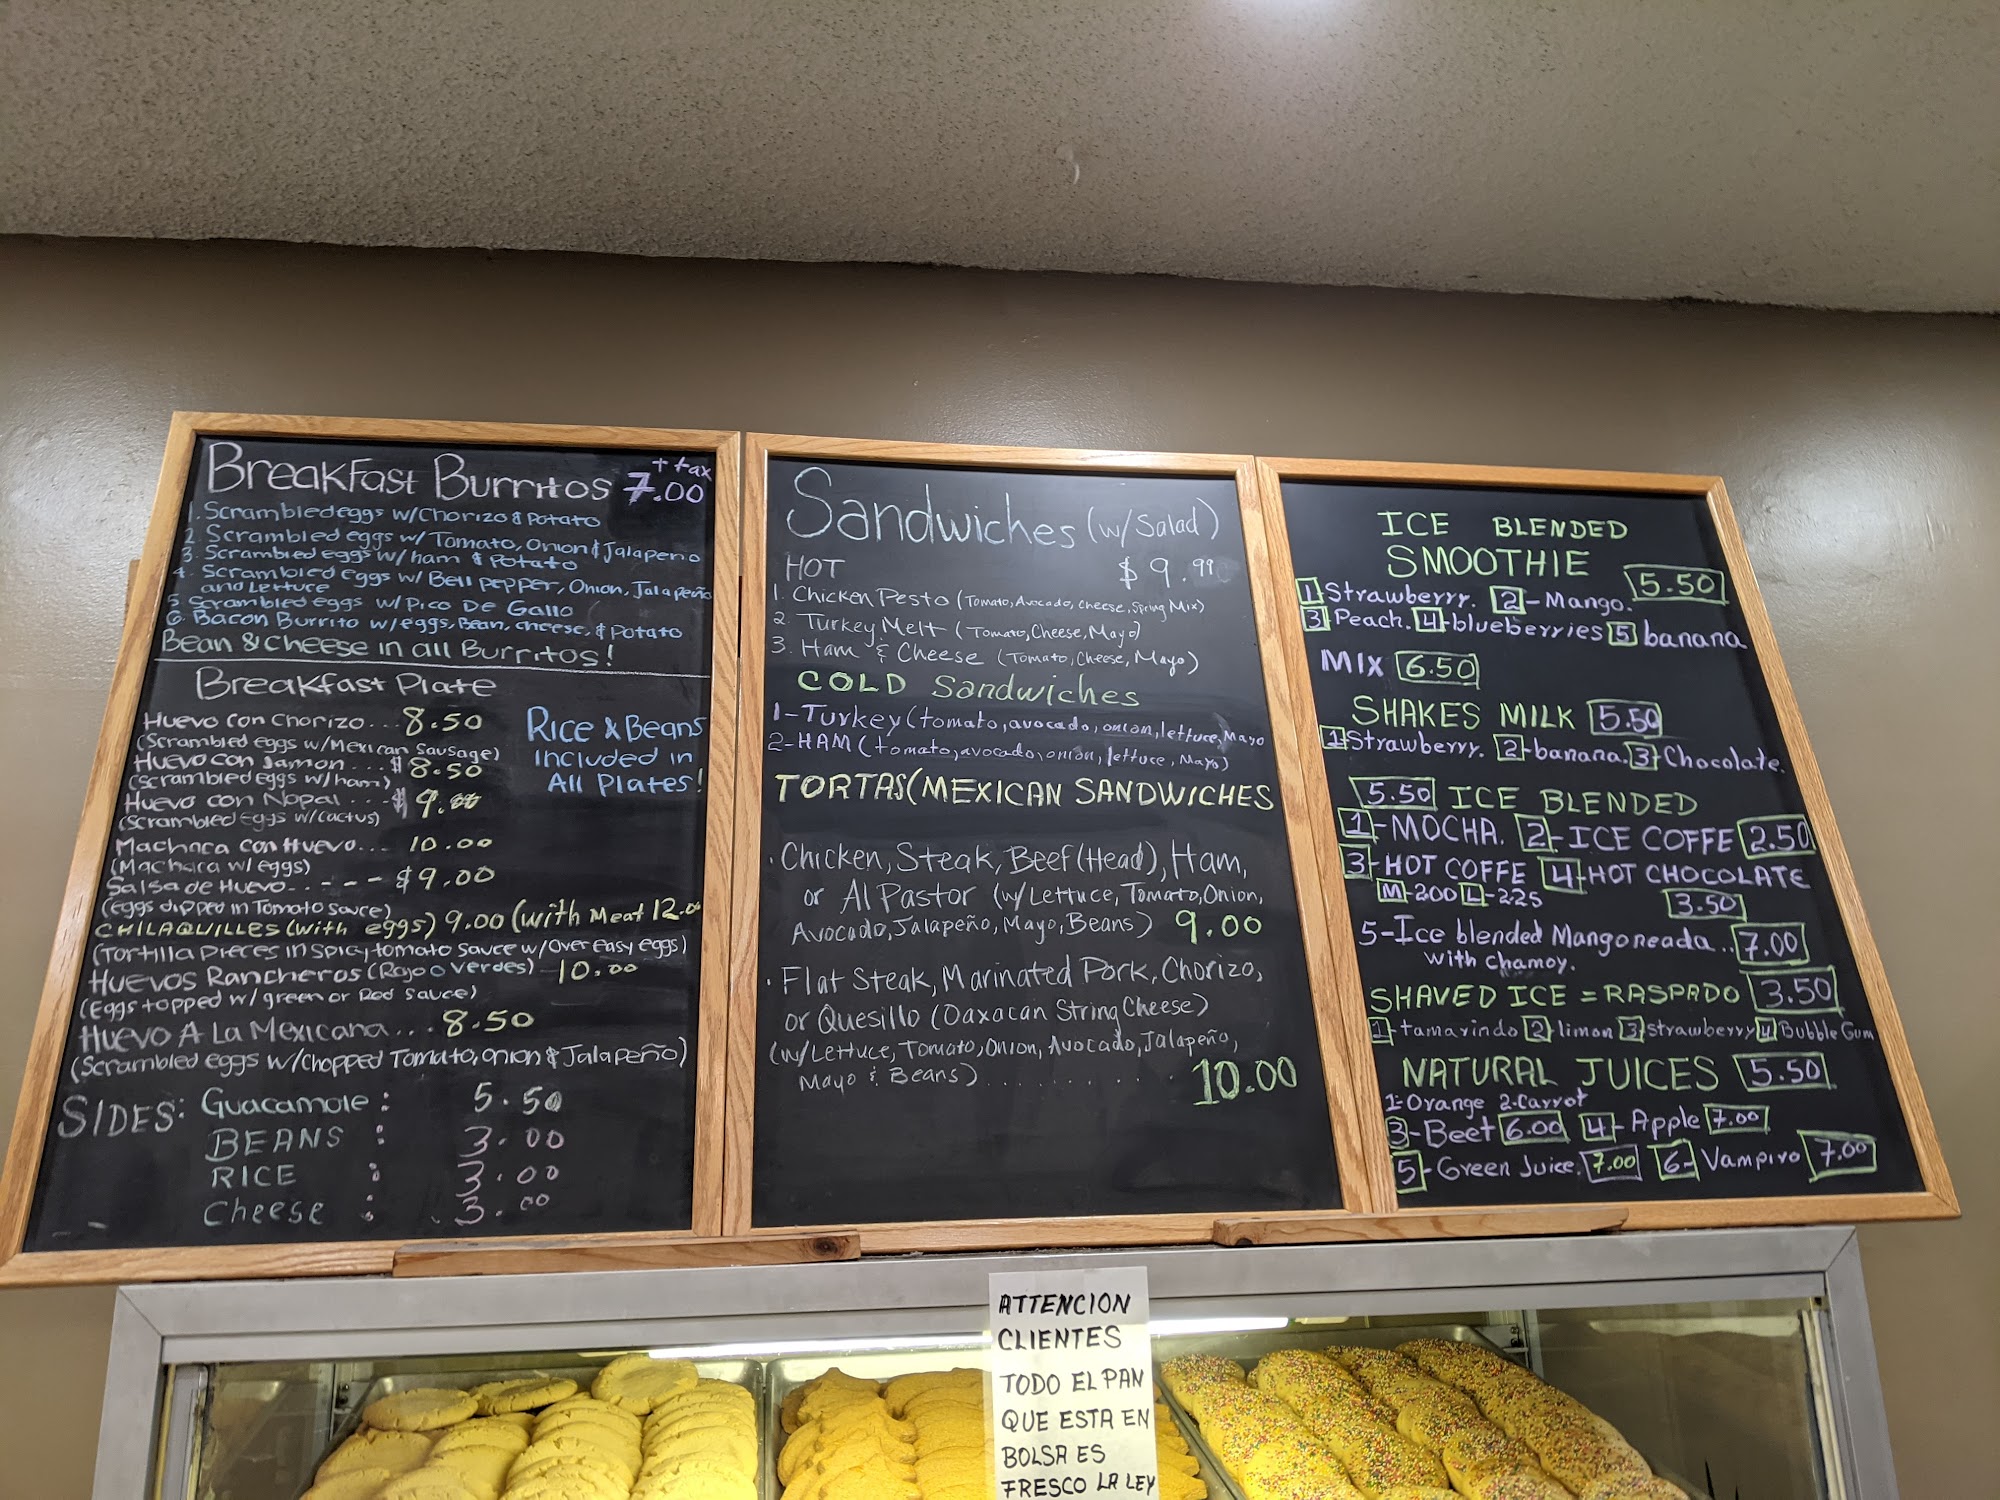 Breakfast Burritos + tax 7.00
1. Scrambled eggs w/Chorizo & Potato
2. Scrambled eggs w/ Tomato, Onion & Jalapeño
3. Scrambled eggs w/ ham & Potato
4. Scrambled eggs w/ Bell pepper, Onion, Jalapeño
and Lettuce
5. Scrambled eggs w/ Pico De Gallo
6. Bacon Burrito w/ eggs, Bean, cheese, & Potato
Bean & Cheese in all Burritos!
Breakfast Plate
Huevo con Chorizo... 8.50
(Scrambled eggs w/Mexican Sausage)
Huevo con Jamon... $8.50
(Scrambled eggs w/ham)
Huevo con Nopal ... $9.00
(Scrambled eggs w/cactus)
Machaca con Huevo... 10.00
(Machaca w/ eggs)
Salsa de Huevo..---$9.00
(eggs dipped in Tomato sauce)
CHILAQUILLES (with eggs) 9.00 (with Meat 12.00
(Tortilla pieces in spicy tomato sauce w/over easy eggs)
Huevos Rancheros (Rojo o Verdes) - 10.00
(Eggs topped w/ green or Red sauce)
Huevo A La Mexicana... 8.50
(Scrambled eggs w/chopped Tomato, onion & Jalapeño)
Rice & Beans
Included in
All Plates!
SIDES: Guacamole : 5.50
BEANS : 3.00
RICE : 3.00
Cheese : 3.00
Sandwiches (w/ Salad)
HOT $9.99
1. Chicken Pesto (Tomato, Avocado, Cheese, Spring Mix)
2. Turkey Melt (Tomato, Cheese, Mayo)
3. Ham & Cheese (Tomato, Cheese, Mayo)
COLD Sandwiches
1-Turkey (tomato, avocado, onion, lettuce, Mayo
2-HAM (tomato, avocado, onion, lettuce, Mayo)
TORTAS(MEXICAN SANDWICHES
· Chicken, Steak, Beef (Head), Ham,
or Al Pastor (w/ Lettuce, Tomato, Onion,
Avocado, Jalapeño, Mayo, Beans) 9.00
· Flat Steak, Marinated Pork, Chorizo,
or Quesillo (Oaxacan String Cheese)
(w/ Lettuce, Tomato, Onion, Avocado, Jalapeño,
Mayo & Beans).......... 10.00
ICE BLENDED
SMOOTHIE 5.50
1-Strawberry. 2-Mango.
3-Peach. 4-blueberries 5-banana
MIX 6.50
SHAKES MILK 5.50
1-Strawberry. 2-banana. 3-Chocolate.
5.50 ICE BLENDED
1-MOCHA. 2-ICE COFFE 2.50
3-HOT COFFE 4-HOT CHOCOLATE
M-200 L-225 3.50
5-Ice blended Mangoneada.. 7.00
with chamoy.
SHAVED ICE = RASPADO 3.50
1-tamarindo 2-limon 3-strawberry 4-Bubble Gum
NATURAL JUICES 5.50
1-Orange 2-Carrot
3-Beet 6.00 4-Apple 7.00
5-Green Juice. 7.00 6-Vampiro 7.00
ATTENCION
CLIENTES
TODO EL PAN
QUE ESTA EN
BOLSA ES
FRESCO LA LEY